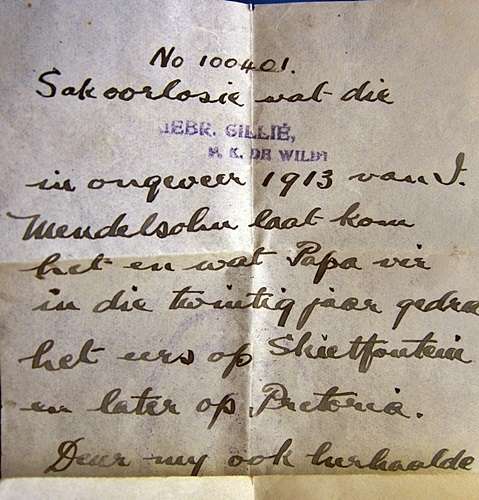 No 100401.
Sakoorlosie wat die
GEBR. GILLIÉ,
P. K. DE WILDT
in ongeveer 1913 van I.
Mendelsohn laat kom
het en wat Papa vir
in die twintig jaar gedra
het eers op Skietfontein
en later op Pretoria.
Deur my ook herhaalde